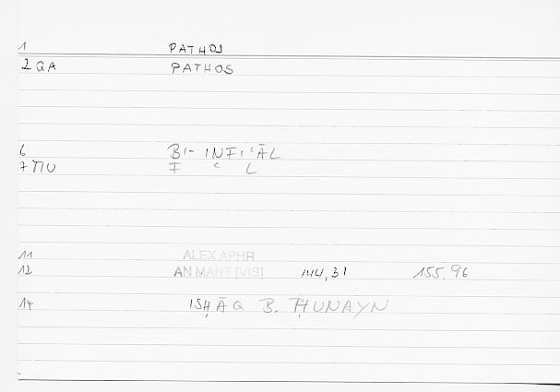 1 PATHOS
2 QA PATHOS
6 BI-INFIʿĀL
7 MU F ʿ L
11 ALEX APHR
12 AN MANT [VIS] 144,31 155.96
14 ISḤĀQ B. ḤUNAYN